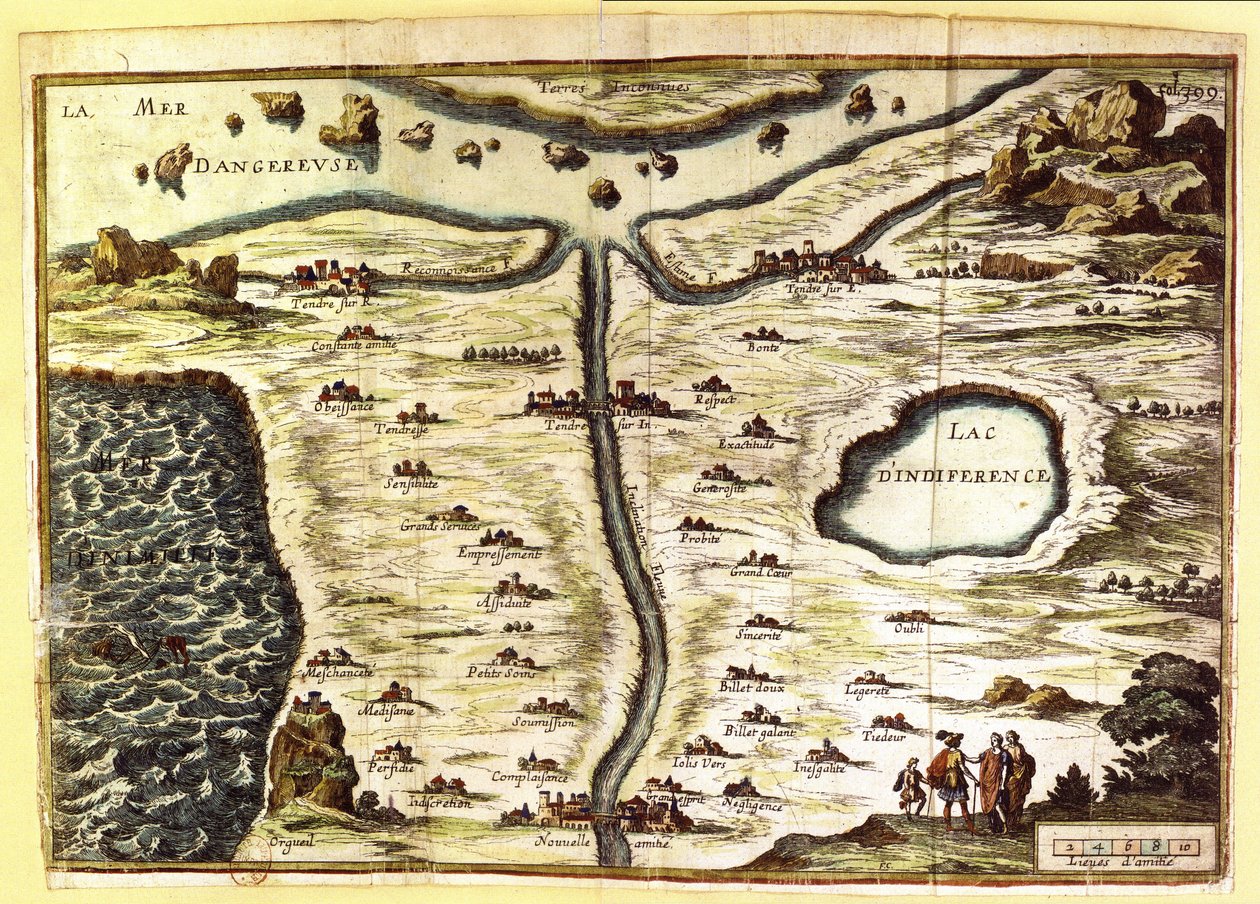 Terres Inconnues
fol. 399.
LA MER
DANGEREUSE
Reconnoissance F.
Estime F.
Tendre sur R.
Tendre sur E.
Constante amitié
Bonté
Obeissance
Tendresse
Tendre sur In
Respect
Exactitude
LAC
D'INDIFERENCE
MER
D'INIMITIÉ
Sensibilité
Generosité
Inclination Fleuve
Grands Services
Probité
Empressement
Grand Cœur
Assiduité
Sincerité
Oubli
Meschanceté
Petits Soins
Billet doux
Legereté
Medisance
Soumission
Billet galant
Tiedeur
Perfidie
Complaisance
Iolis Vers
Inesgalité
Indiscretion
Grand esprit
Negligence
Orgueil
Nouvelle amitié
2 4 6 8 10
Lieues d'amitié
F.C.